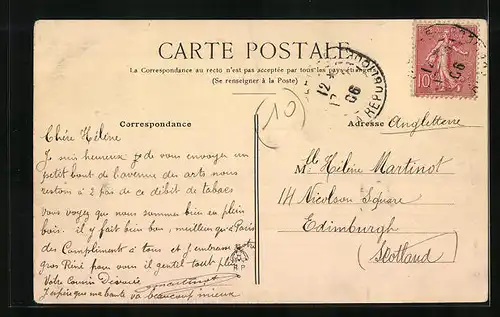 CARTE POSTALE
La Correspondance au recto n'est pas acceptée par tous les pays étrangers
(Se renseigner à la Poste)
Correspondance
Chère Hélène
Je suis heureux de vous envoyer un
petit bout de l'avenue des arts nous
restons à 2 pas de ce débit de tabacs
vous voyez que nous sommes bien en plein
bois. il y fait bien bon, meilleur qu'à Paris
des Compliments à tous et j'embrasse
gros Réné pour vous il gentil tout plein
Votre Cousin
J'espère que ma tante va beaucoup mieux
10
12
06
REPUBLIQUE
10
06
Adresse Angleterre
Mlle Hélène Martinot
14 Nicolson Square
Edimburgh
Scotland